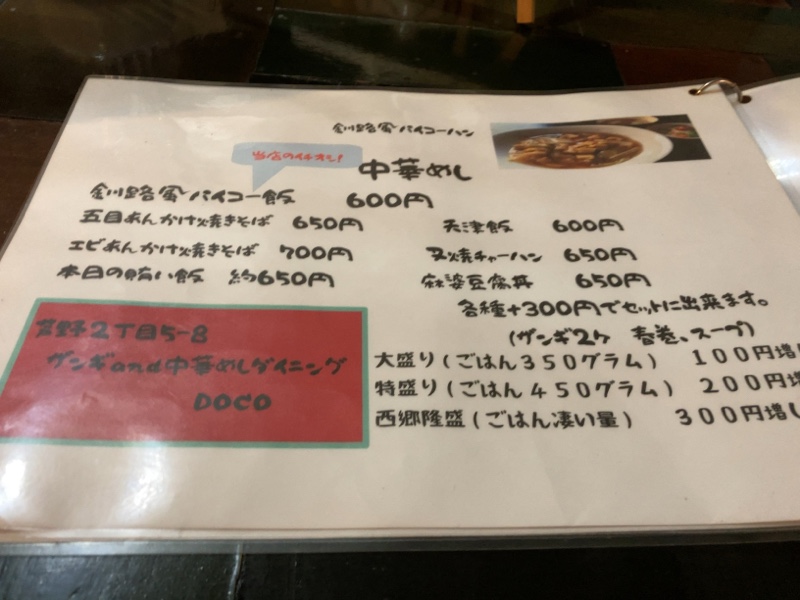 釧路風パイコーハン
当店のイチオシ!
中華めし
釧路風パイコー飯 600円
五目あんかけ焼きそば 650円
天津飯 600円
エビあんかけ焼きそば 700円
叉焼チャーハン 650円
本日の賄い飯 約650円
麻婆豆腐丼 650円
各種+300円でセットに出来ます。
(ザンギ2ヶ 春巻、スープ)
芦野2丁目5-8
ザンギand中華めしダイニング
DOCO
大盛り(ごはん350グラム) 100円増
特盛り(ごはん450グラム) 200円増
西郷隆盛(ごはん凄い量) 300円増し